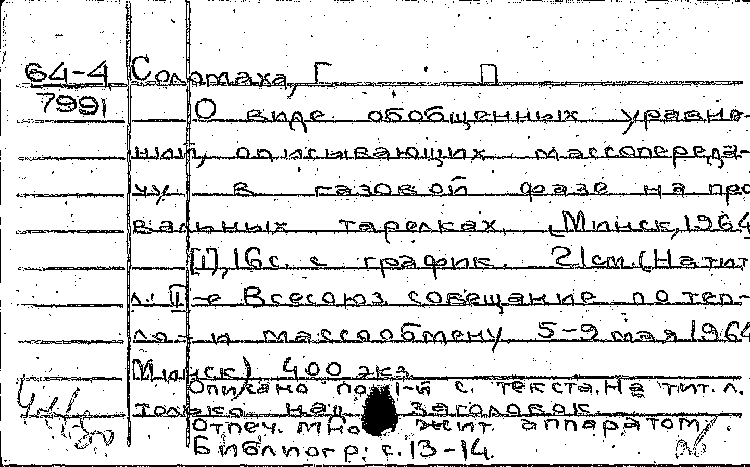 64-4
7991
Соломаха, Г П
О виде обобщенных уравне-
ний, описывающих массопереда-
чу в газовой фазе на про
вальных тарелках. [Минск, 1964
[1], 16 с. с график. 21 см. (На тит
л.: II-е Всесоюз. совещание по теп-
ло- и массообмену. 5-9 мая 1964
Минск) 400 экз
Описано по 1-й с. текста. На тит. л.
только заголовок
Отпеч. аппаратом.
Библиогр: с. 13-14.